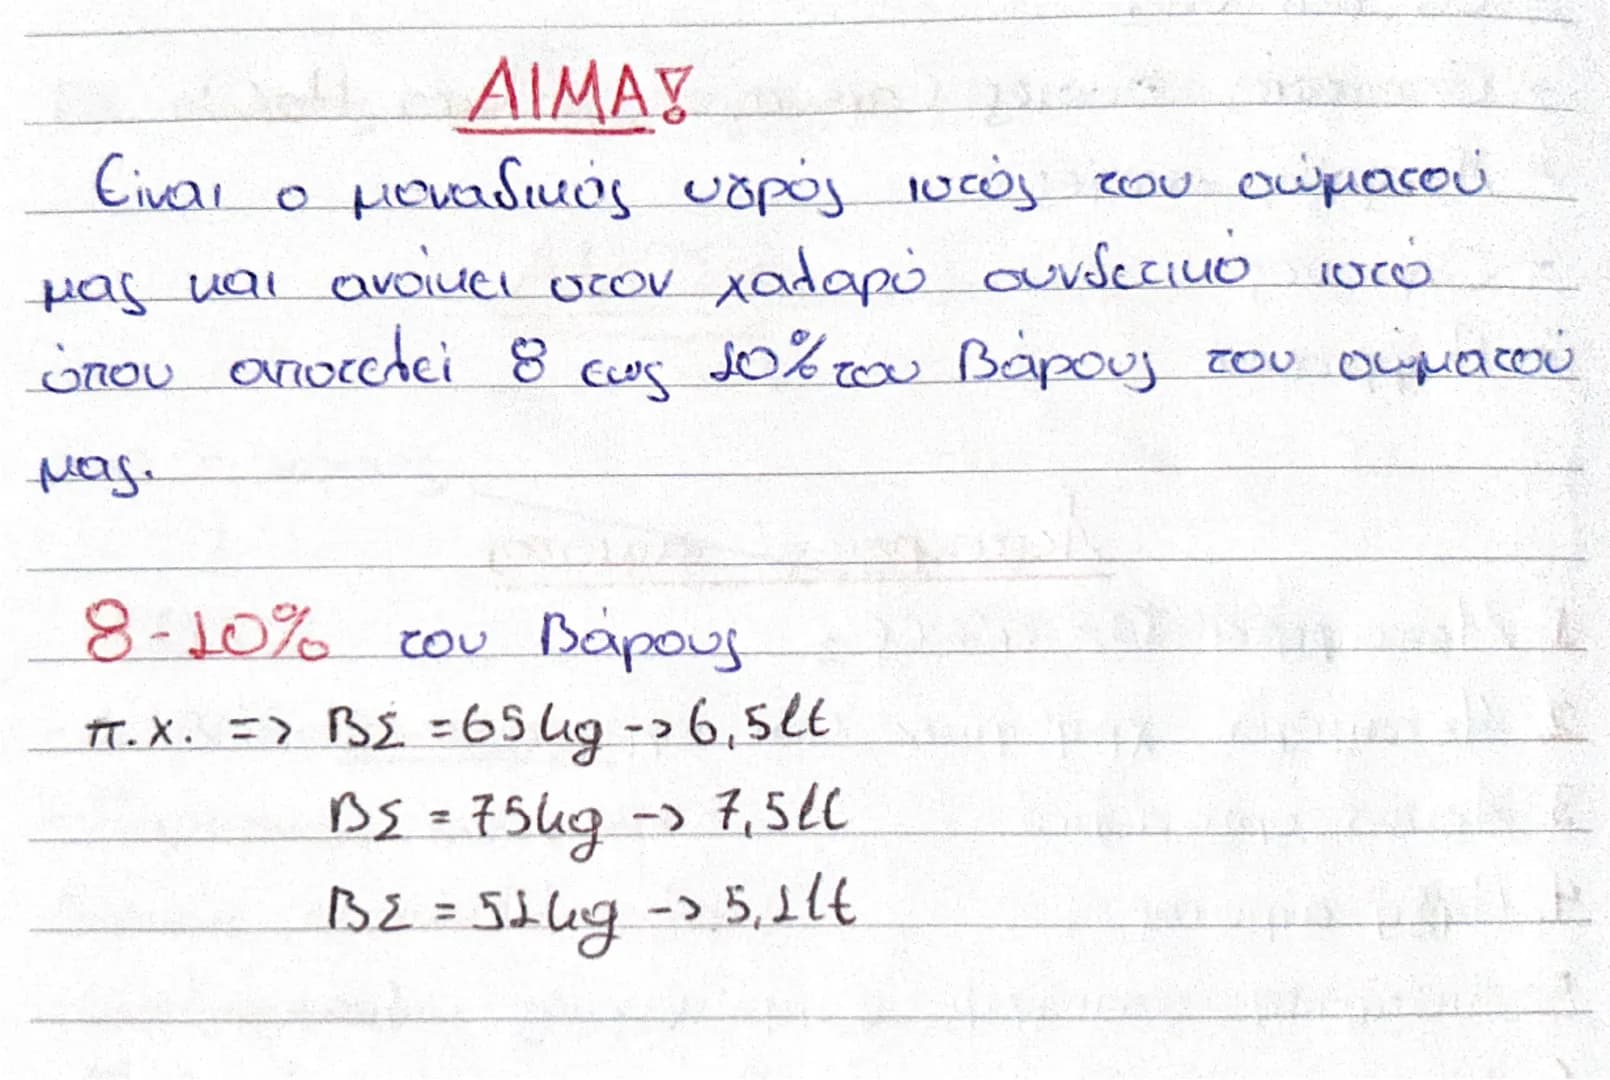 ΑΙΜΑ!
Είναι ο μοναδικός υγρός ιστός του σώματού
μας και ανοίκει στον χαλαρό συνδετικό ιστό
όπου αποτελεί 8 εως 10% του Βάρους του σώματού
μας.
8-10% του Βάρους
π.χ. => ΒΣ = 65kg -> 6,5lt
ΒΣ = 75kg -> 7,5lt
ΒΣ = 51kg -> 5,1lt